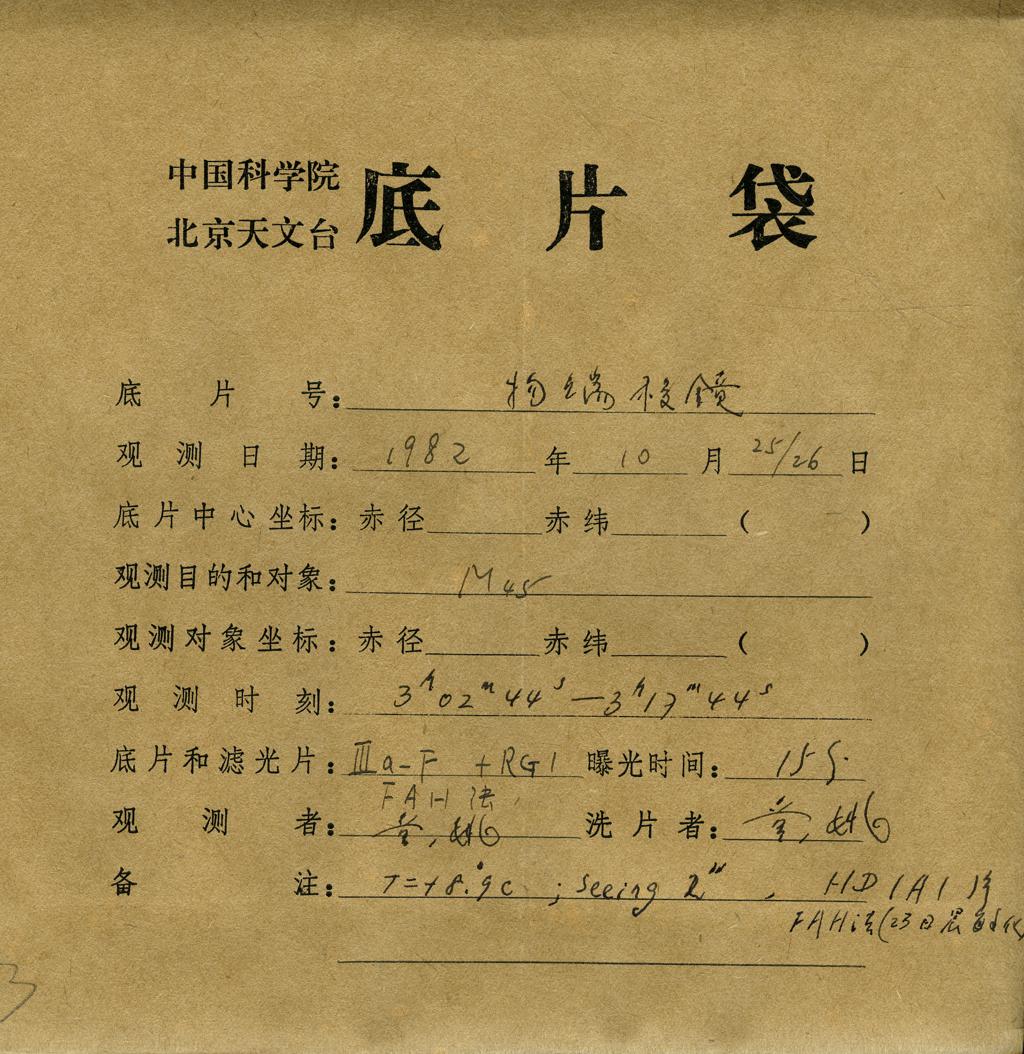 中国科学院
北京天文台
底片袋
底片号: 物端棱镜
观测日期: 1982 年 10 月 25/26 日
底片中心坐标: 赤径 赤纬 ( )
观测目的和对象: M45
观测对象坐标: 赤径 赤纬 ( )
观测时刻: 3h02m44s—3h17m44s
底片和滤光片: IIIa-F +RG1 曝光时间: 15
FAH法
观测者: 洗片者:
备注: T=+8.°9c ; Seeing 2" , HD
FAH法(23日晨
3